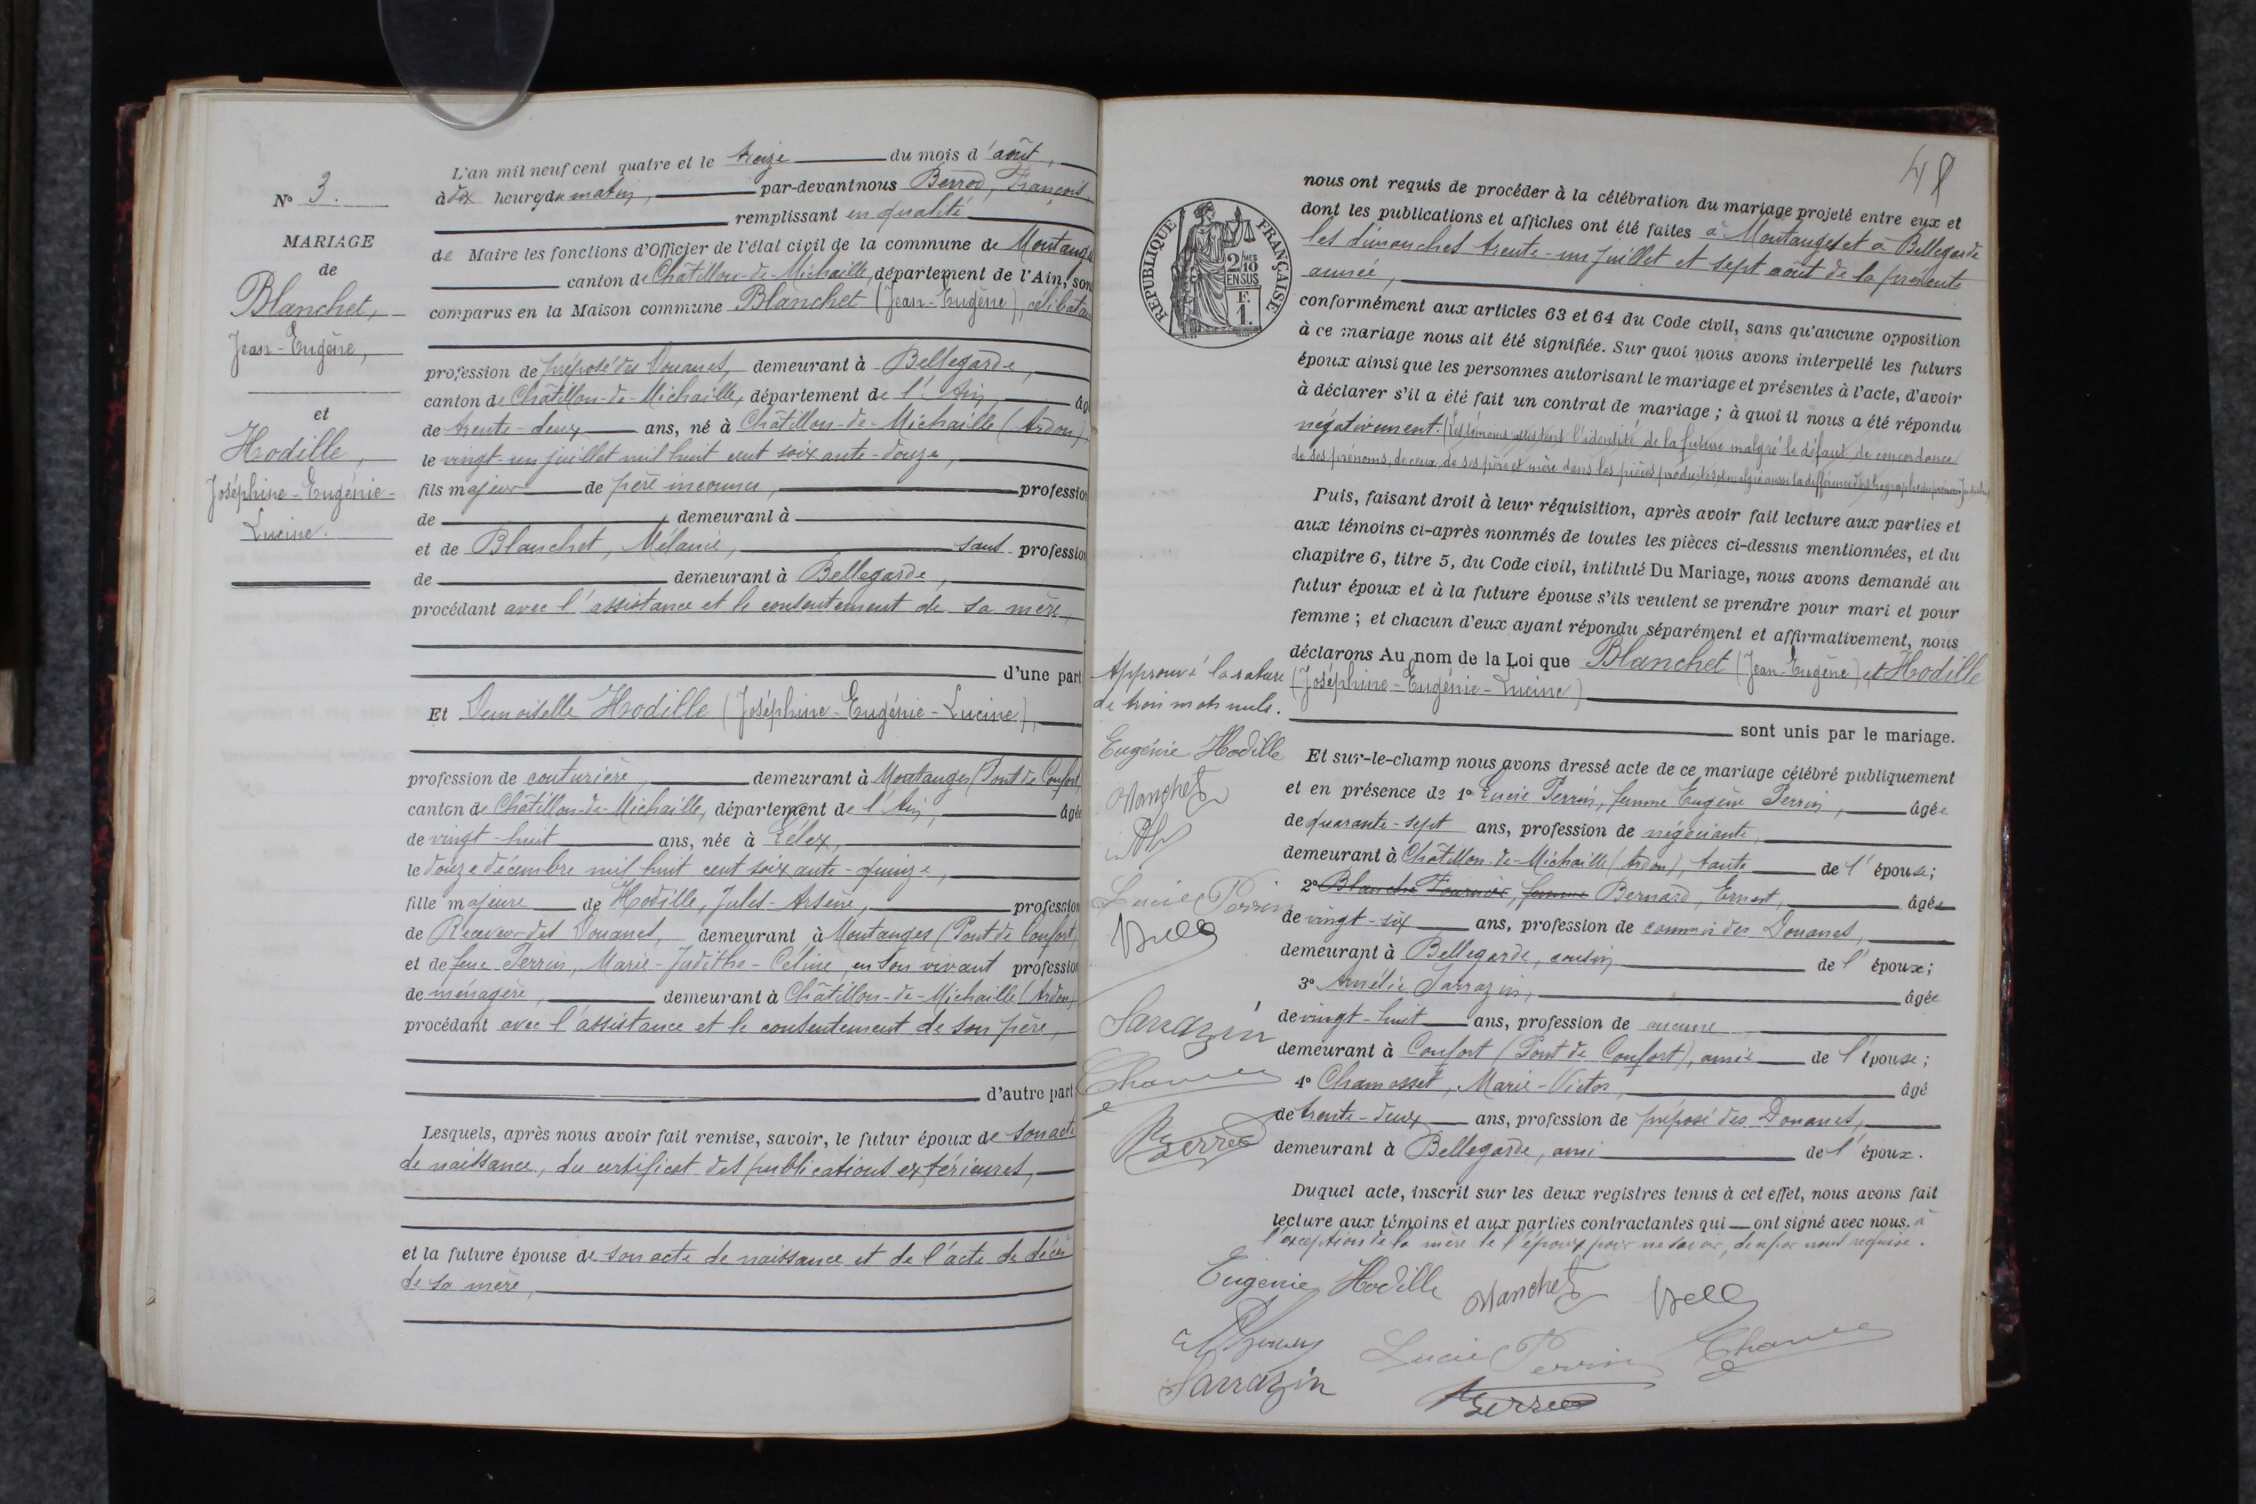 N° 3.
MARIAGE
de
Blanchet,
Jean-Eugène,
et
Hodille,
Joséphine-Eugénie-
Lucine.
L'an mil neuf cent quatre et le treize du mois d'août,
à dix heures du matin, par-devant nous Berrod, François,
remplissant en qualité
de Maire les fonctions d'Officier de l'état civil de la commune de Montanges
canton de Châtillon-de-Michaille, département de l'Ain, sont
comparus en la Maison commune Blanchet (Jean-Eugène), célibataire
profession de préposé des Douanes, demeurant à Bellegarde,
canton de Châtillon-de-Michaille, département de l'Ain, âgé
de trente-deux ans, né à Châtillon-de-Michaille (Ardon)
le vingt-un juillet mil huit cent soixante-douze,
fils majeur de père inconnu, profession
de demeurant à
et de Blanchet, Mélanie, sans profession
de demeurant à Bellegarde,
procédant avec l'assistance et le consentement de sa mère,
d'une part
Et Demoiselle Hodille (Joséphine-Eugénie-Lucine),
profession de couturière, demeurant à Montanges (Pont de Confort)
canton de Châtillon-de-Michaille, département de l'Ain, âgée
de vingt-huit ans, née à Lélex,
le douze décembre mil huit cent soixante-quinze,
fille majeure de Hodille, Jules-Arsène, profession
de Receveur des Douanes, demeurant à Montanges (Pont de Confort)
et de feue Perrin, Marie-Judithe-Céline, en son vivant profession
de ménagère, demeurant à Châtillon-de-Michaille (Ardon,)
procédant avec l'assistance et le consentement de son père,
d'autre part
Lesquels, après nous avoir fait remise, savoir, le futur époux de son acte
de naissance, du certificat des publications extérieures,
et la future épouse de son acte de naissance et de l'acte de décès
de sa mère,
48
RÉPUBLIQUE FRANÇAISE
2/10
EN SUS
F.
1.
nous ont requis de procéder à la célébration du mariage projeté entre eux et
dont les publications et affiches ont été faites à Montanges et à Bellegarde
les dimanches trente-un juillet et sept août de la présente
année,
conformément aux articles 63 et 64 du Code civil, sans qu'aucune opposition
à ce mariage nous ait été signifiée. Sur quoi nous avons interpellé les futurs
époux ainsi que les personnes autorisant le mariage et présentes à l'acte, d'avoir
à déclarer s'il a été fait un contrat de mariage ; à quoi il nous a été répondu
négativement. (Les témoins attestent l'identité de la future malgré le défaut de concordance
de ses prénoms, de ceux de ses père et mère dans les pièces produites et malgré aussi la différence d'orthographe du prénom Judithe)
Puis, faisant droit à leur réquisition, après avoir fait lecture aux parties et
aux témoins ci-après nommés de toutes les pièces ci-dessus mentionnées, et du
chapitre 6, titre 5, du Code civil, intitulé Du Mariage, nous avons demandé au
futur époux et à la future épouse s'ils veulent se prendre pour mari et pour
femme ; et chacun d'eux ayant répondu séparément et affirmativement, nous
déclarons Au nom de la Loi que Blanchet (Jean-Eugène) et Hodille
(Joséphine-Eugénie-Lucine)
sont unis par le mariage.
Et sur-le-champ nous avons dressé acte de ce mariage célébré publiquement
et en présence de 1° Lucie Perrin, femme Eugène Perrin, âgée
de quarante-sept ans, profession de négociante,
demeurant à Châtillon-de-Michaille (Ardon), tante de l'épouse ;
2° Blanche Fournier, femme Bernard, Ernest, âgée
de vingt-six ans, profession de commis des Douanes,
demeurant à Bellegarde, cousin de l'époux ;
3° Amélie Sarrazin, âgée
de vingt-huit ans, profession de aucune
demeurant à Confort (Pont de Confort), amie de l'épouse ;
4° Chamosset, Marie-Victor, âgé
de trente-deux ans, profession de préposé des Douanes,
demeurant à Bellegarde, ami de l'époux.
Duquel acte, inscrit sur les deux registres tenus à cet effet, nous avons fait
lecture aux témoins et aux parties contractantes qui ont signé avec nous. à
l'exception de la mère de l'époux pour ne savoir, de ce par nous requise.
Approuvé la rature
de trois mots nuls.
Eugénie Hodille
Blanchet
Lucie Perrin
Sarrazin
Berrod
Eugénie Hodille
Blanchet
Lucie Perrin
Sarrazin
Berrod